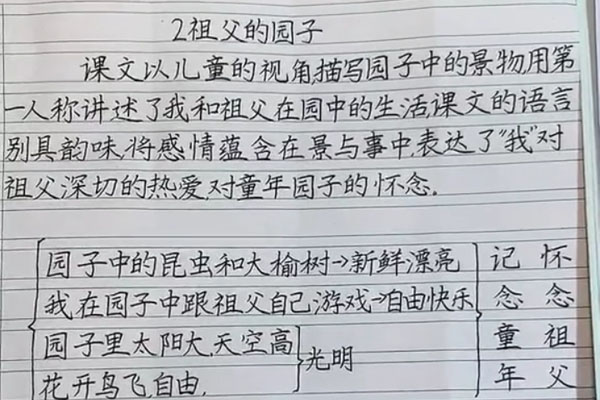 2祖父的园子
课文以儿童的视角,描写园子中的景物用第
一人称讲述了我和祖父在园中的生活,课文的语言
别具韵味,将感情蕴含在景与事中,表达了"我"对
祖父深切的热爱,对童年园子的怀念.
园子中的昆虫和大榆树→新鲜漂亮
我在园子中跟祖父自己游戏→自由快乐
园子里太阳大,天空高
花开鸟飞,自由.
光明
记念童年
怀念祖父